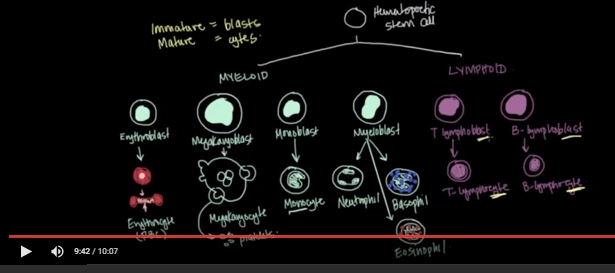 Immature = blasts
Mature = cytes.
Hematopoetic
stem cell
MYELOID
LYMPHOID
Erythroblast
Megakaryoblast
Monoblast
Myeloblast
T lymphoblast
B-lymphoblast
Monocyte
Neutrophil
Basophil
T-lymphocyte
B-lymphocyte
Erythrocyte
(RBC)
Megakaryocyte
platelets.
Eosinophil
9:42 / 10:07